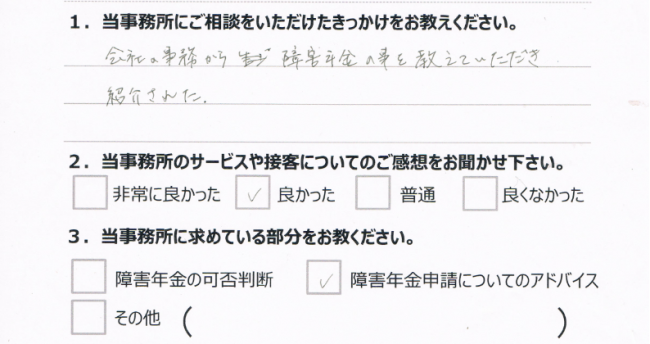 1．当事務所にご相談をいただけたきっかけをお教えください。
会社の事務から 障害年金の事を教えていただき
紹介された.
2．当事務所のサービスや接客についてのご感想をお聞かせ下さい。
非常に良かった ✓ 良かった 普通 良くなかった
3．当事務所に求めている部分をお教ください。
障害年金の可否判断 ✓ 障害年金申請についてのアドバイス
その他 ( )